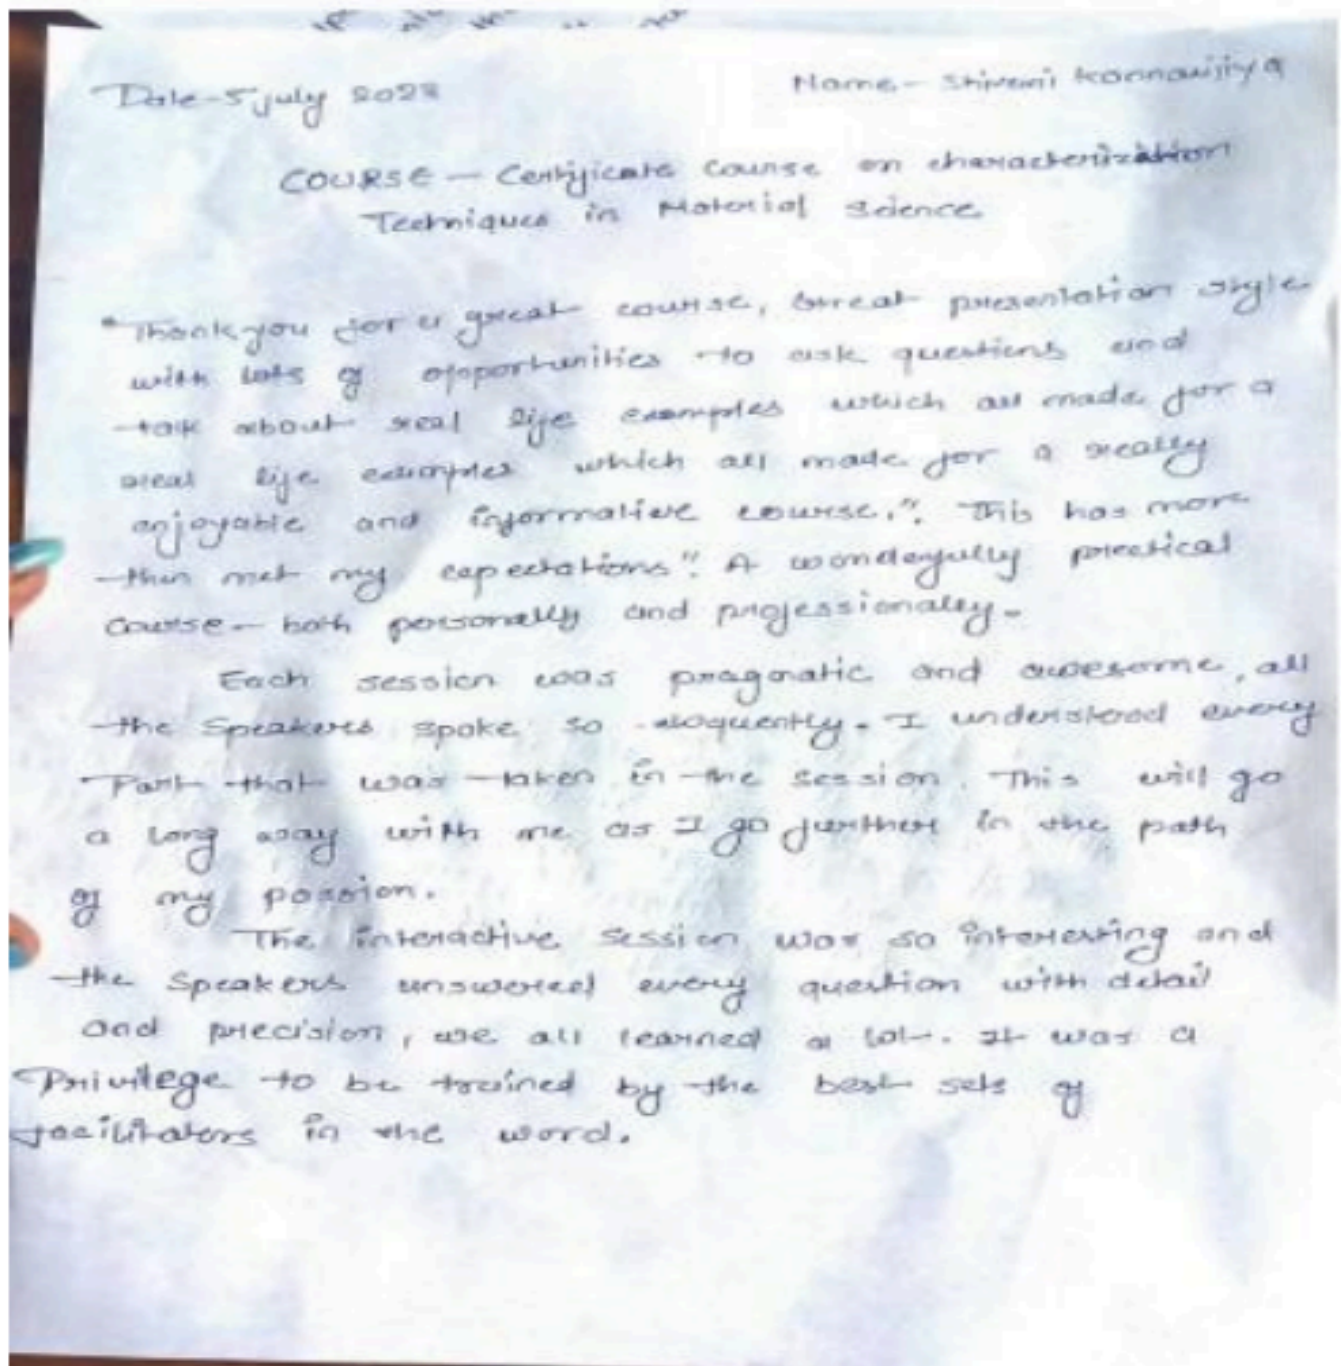 Date-5 July 2023
Name- Shivani Kannaujiya
COURSE - Certificate Course on characterization
Techniques in Material Science
"Thank you for a great course, Great presentation style
with lots of opportunities to ask questions and
talk about real life examples which all made for a
real life examples which all made for a really
enjoyable and informative course.". This has more
than met my expectations". A wonderfully practical
course- both personally and professionally.
Each session was pragmatic and awesome, all
the Speakers spoke so eloquently. I understood every
Part that was taken in the session. This will go
a long way with me as I go further in the path
of my passion.
The interactive session was so interesting and
the Speakers answered every question with detail
and precision, we all learned a lot. It was a
Privilege to be trained by the best sets of
facilitators in the word.